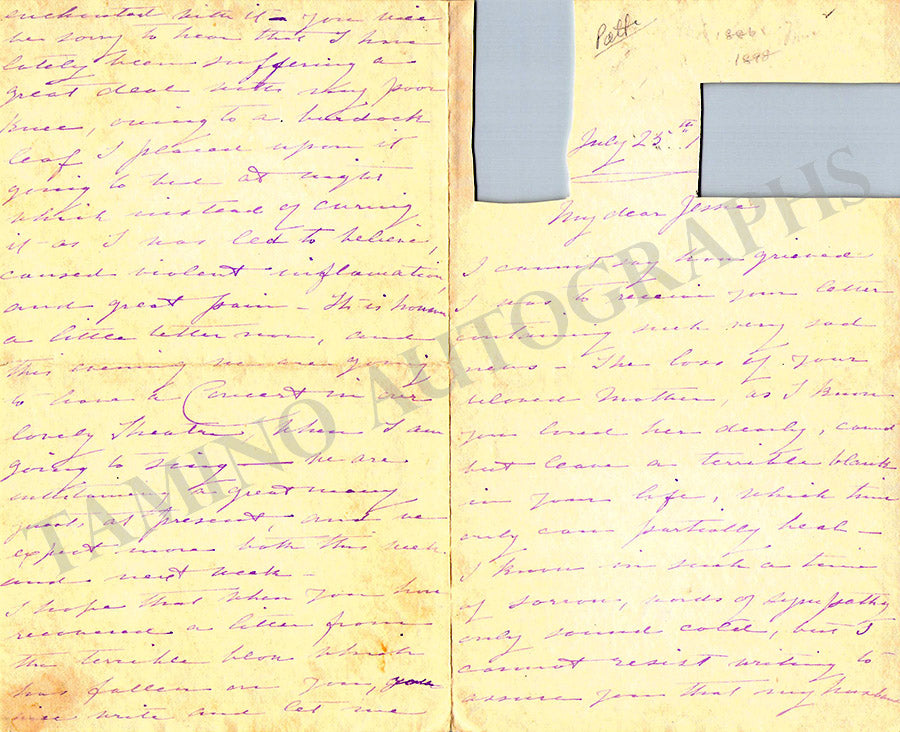 Patti
1898
July 25th 1
My dear Jessie
I cannot say how grieved
I was to receive your letter
containing such very sad
news - The loss of your
beloved Mother, as I know
you loved her dearly, cannot
but leave a terrible blank
in your life, which time
only can partially heal -
I know in such a time
of sorrow, words of sympathy
only sound cold, but I
cannot resist writing to
assure you that my husband
enchanted with it - you will
be sorry to hear that I have
lately been suffering a
great deal with my poor
knee, owing to a burdock
leaf I placed upon it
going to bed at night
which instead of curing
it - as I was led to believe,
caused violent inflamation,
and great pain - It is however
a little better now, and
this evening we are going
to have a Concert in our
lovely Theatre, when I am
going to sing - we are
entertaining a great many
guests, at present, and we
expect more both this week
and next week -
I hope that when you have
recovered a little from
the terrible blow which
has fallen on you, you
will write and let me
TAMINO AUTOGRAPHS